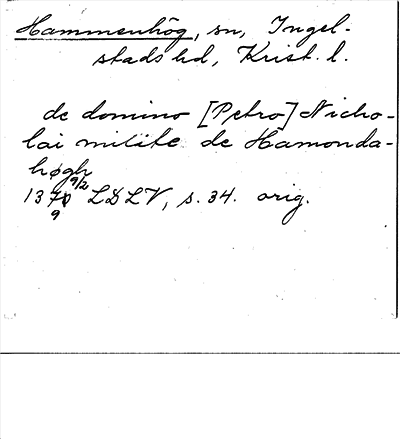 Hammenhög, sn, Ingel-
stads hd, Krist. l.
de domino [Petro] Nicho-
lai milite de Hamonda-
høgh
1379 9/2 LDLV, s. 34. orig.